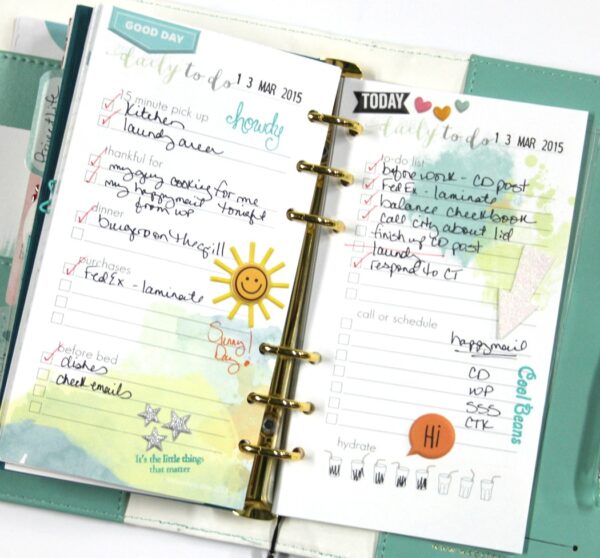 GOOD DAY
daily to do
13 MAR 2015
15 minute pick up
kitchen
howdy
thankful for
my guy cooking for me
my happymail tonight
dinner
purchases
FedEx - laminate
Sunny
Day!
before bed
dishes
check emails
It's the little things
that matter
Project Life
TODAY
daily to do
13 MAR 2015
to-do list
before work - CD post
FedEx - laminate
balance checkbook
call city about lid
finish up CD post
laundry
respond to CT
call or schedule
happymail
CD
WP
SSS
CTK
Cool Beans
Hi
hydrate